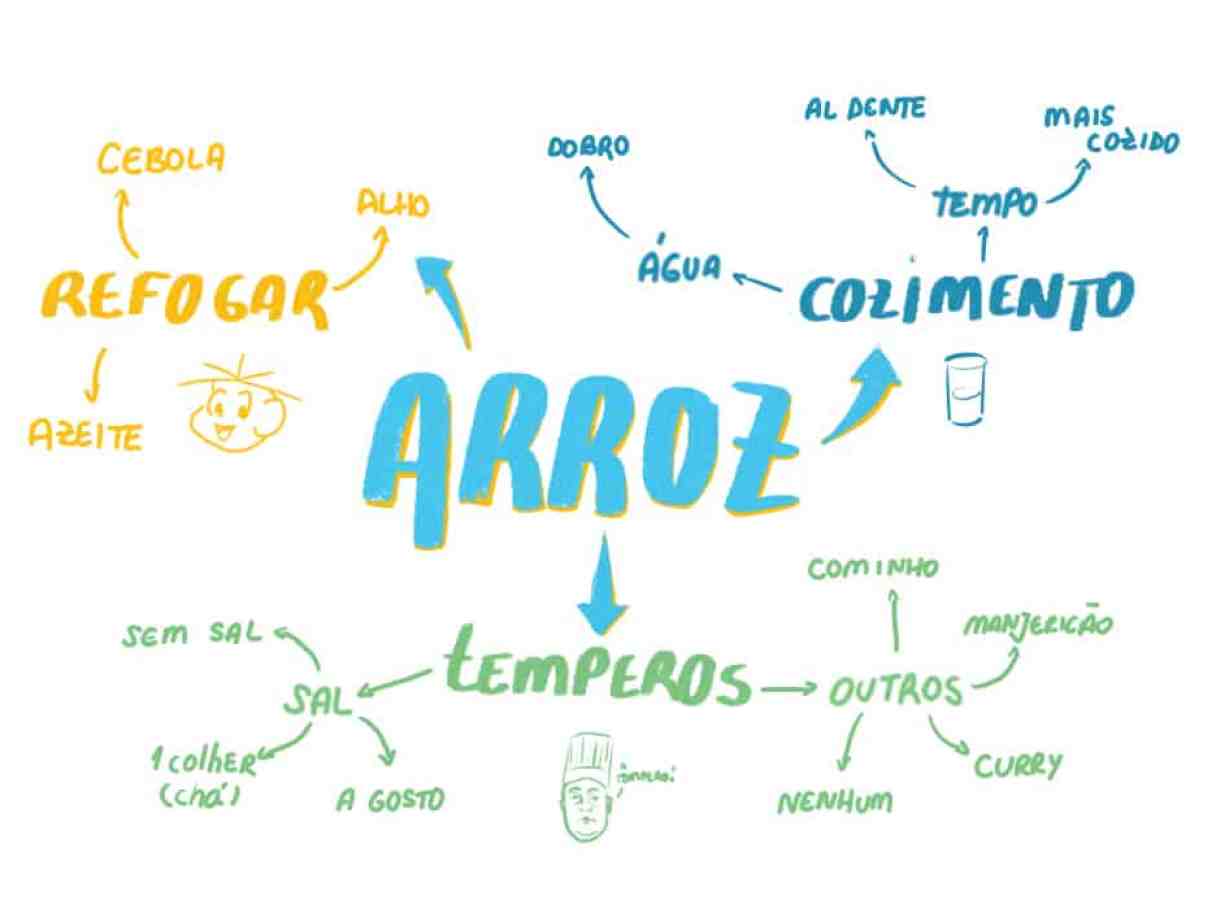 CEBOLA
ALHO
REFOGAR
AZEITE
DOBRO
ÁGUA
AL DENTE
MAIS
COZIDO
TEMPO
COZIMENTO
ARROZ
TEMPEROS
SEM SAL
SAL
1 colher
(chá)
A GOSTO
COMINHO
MANJERICÃO
OUTROS
CURRY
NENHUM